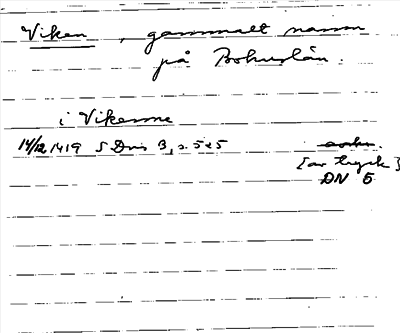 Viken, gammalt namn
på Bohuslän.
i Vikenne
14/12 1419 S Dns 3, s. 525
[av tryck]
DN 5